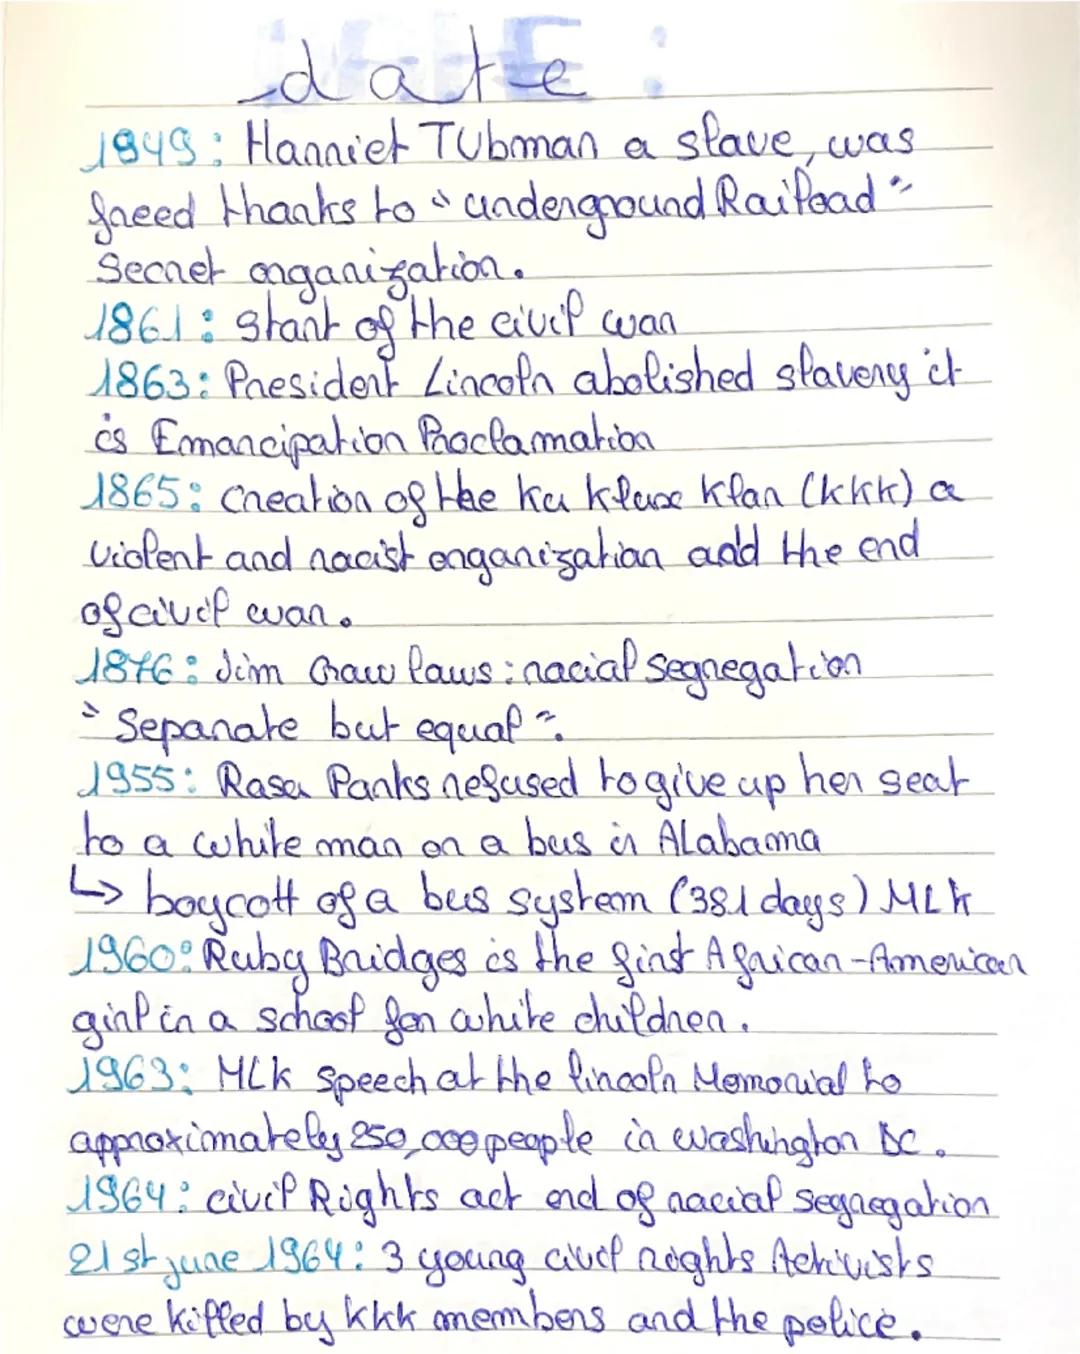 date
1849: Harriet Tubman a slave, was
freed thanks to "underground Raiload"
Secret organization.
1861: start of the civil war
1863: President Lincoln abolished slavery it
is Emancipation Proclamation
1865: creation of the Ku Klux Klan (KKK) a
violent and racist organization add the end
of civil war.
1876: Jim Craw laws: racial segregation
"Separate but equal".
1955: Rosa Parks refused to give up her seat
to a white man on a bus in Alabama
↳ boycott of a bus system (381 days) MLK
1960: Ruby Bridges is the first African-American
girl in a school for white children.
1963: MLK speech at the lincoln Memorial to
approximately 250,000 people in washington DC.
1964: civil Rights act end of racial segregation
21st june 1964: 3 young civil rights Activists
were killed by KKK members and the police.